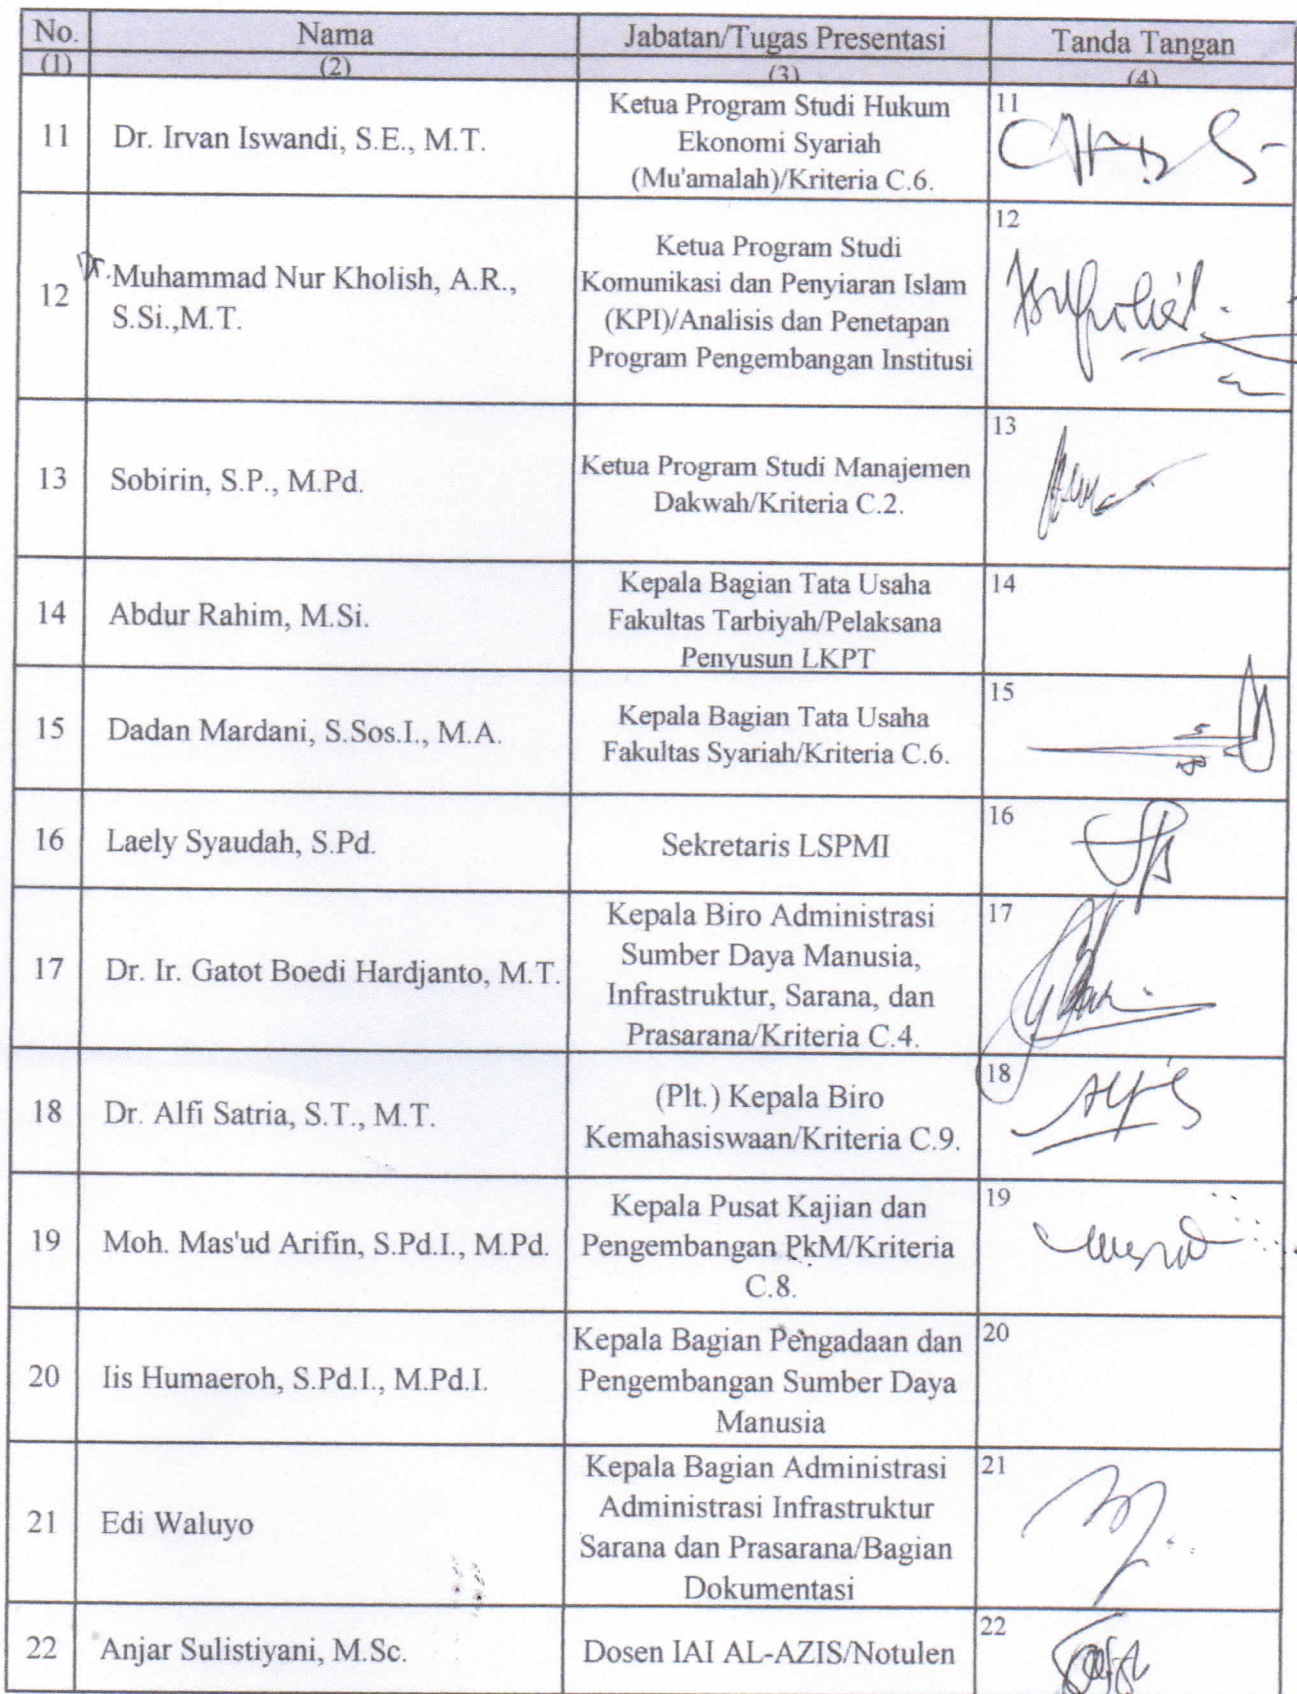 No. Nama Jabatan/Tugas Presentasi Tanda Tangan
(1) (2) (3) (4)
11 Dr. Irvan Iswandi, S.E., M.T. Ketua Program Studi Hukum
Ekonomi Syariah
(Mu'amalah)/Kriteria C.6. 11
12 Dr. Muhammad Nur Kholish, A.R.,
S.Si.,M.T. Ketua Program Studi
Komunikasi dan Penyiaran Islam
(KPI)/Analisis dan Penetapan
Program Pengembangan Institusi 12
13 Sobirin, S.P., M.Pd. Ketua Program Studi Manajemen
Dakwah/Kriteria C.2. 13
14 Abdur Rahim, M.Si. Kepala Bagian Tata Usaha
Fakultas Tarbiyah/Pelaksana
Penyusun LKPT 14
15 Dadan Mardani, S.Sos.I., M.A. Kepala Bagian Tata Usaha
Fakultas Syariah/Kriteria C.6. 15
16 Laely Syaudah, S.Pd. Sekretaris LSPMI 16
17 Dr. Ir. Gatot Boedi Hardjanto, M.T. Kepala Biro Administrasi
Sumber Daya Manusia,
Infrastruktur, Sarana, dan
Prasarana/Kriteria C.4. 17
18 Dr. Alfi Satria, S.T., M.T. (Plt.) Kepala Biro
Kemahasiswaan/Kriteria C.9. 18
19 Moh. Mas'ud Arifin, S.Pd.I., M.Pd. Kepala Pusat Kajian dan
Pengembangan PkM/Kriteria
C.8. 19
20 Iis Humaeroh, S.Pd.I., M.Pd.I. Kepala Bagian Pengadaan dan
Pengembangan Sumber Daya
Manusia 20
21 Edi Waluyo Kepala Bagian Administrasi
Administrasi Infrastruktur
Sarana dan Prasarana/Bagian
Dokumentasi 21
22 Anjar Sulistiyani, M.Sc. Dosen IAI AL-AZIS/Notulen 22